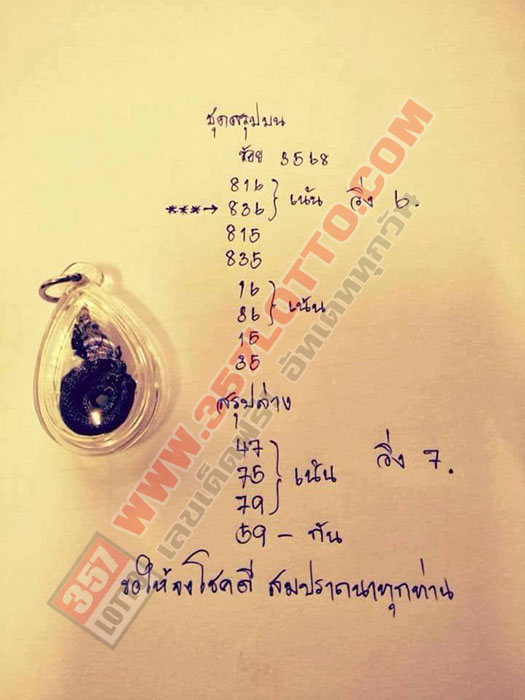 ชุดสรุปบน
ร้อย 3568
816
***→ 836 } เน้น วิ่ง 6.
815
835
16
36 } เน้น
15
35
สรุปล่าง
47
75 } เน้น วิ่ง 7.
79
59 - กัน
ขอให้จงโชคดี สมปราถนาทุกท่าน
357
LOTTO
WWW.357LOTTO.COM
เลขเด็ดฟรี อัพเดททุกวัน